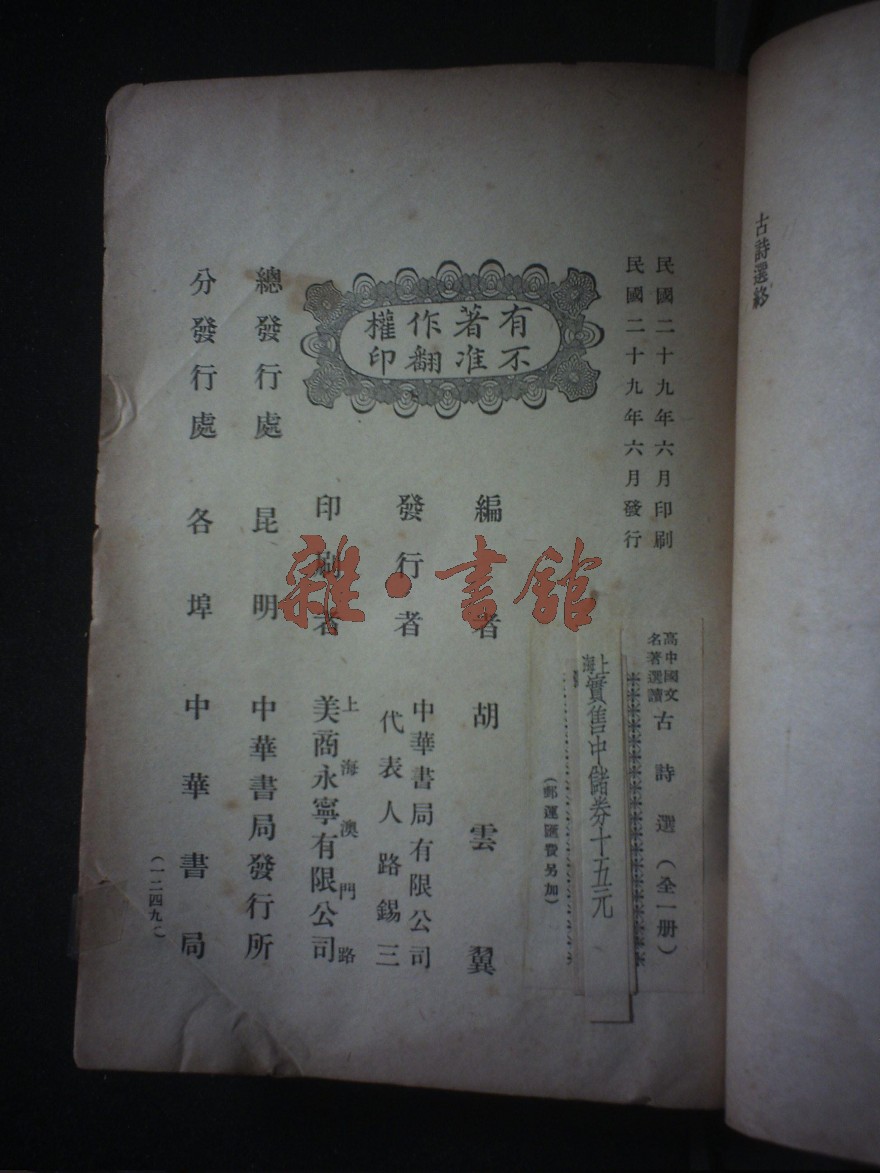 古詩選終
民國二十九年六月印刷
民國二十九年六月發行
高中國文
名著選讀
古詩選(全一册)
上海
實售中儲券十五元
(郵運匯費另加)
有著作權
不准翻印
編者 胡雲翼
發行者 中華書局有限公司
代表人路錫三
印刷者 上海澳門路
美商永寧有限公司
總發行處 昆明 中華書局發行所
分發行處 各埠 中華書局
(一二四九〇)
雜·書館